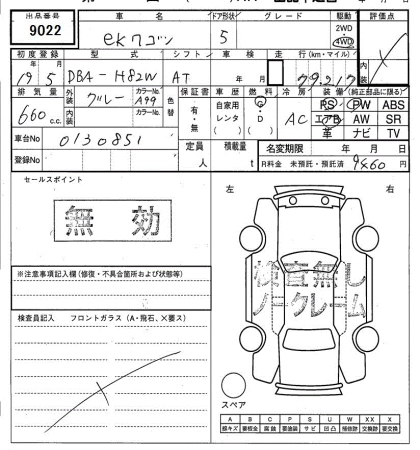 出品番号 車名 ドア形状 グレード 駆動 評価点
9022 ekワゴン 5 2WD 4WD
初度登録 型式 シフト 車検 走行(km・マイル) 内装
19年5月 DBA-H82W AT 年 月
排気量 外装 グレー カラーNo. A99 色替 保証書 車歴 燃料 冷房 装備(純正部品に限る)
660 c.c. 内装 カラーNo. 有・無 自家用 G・D AC PS PW ABS
レンタ エアB AW SR
( ) ( ) 革 ナビ TV
車台No 0130851
定員 人 積載量 t 名変期限 年 月 日
登録No R料金 未預託・預託済 9460円
セールスポイント 左 右
無効
検査無し
ノークレーム
※注意事項記入欄(修復・不具合箇所および状態等)
検査員記入 フロントガラス(A・飛石、X要ス)
スペア
A B C P S U W X XX